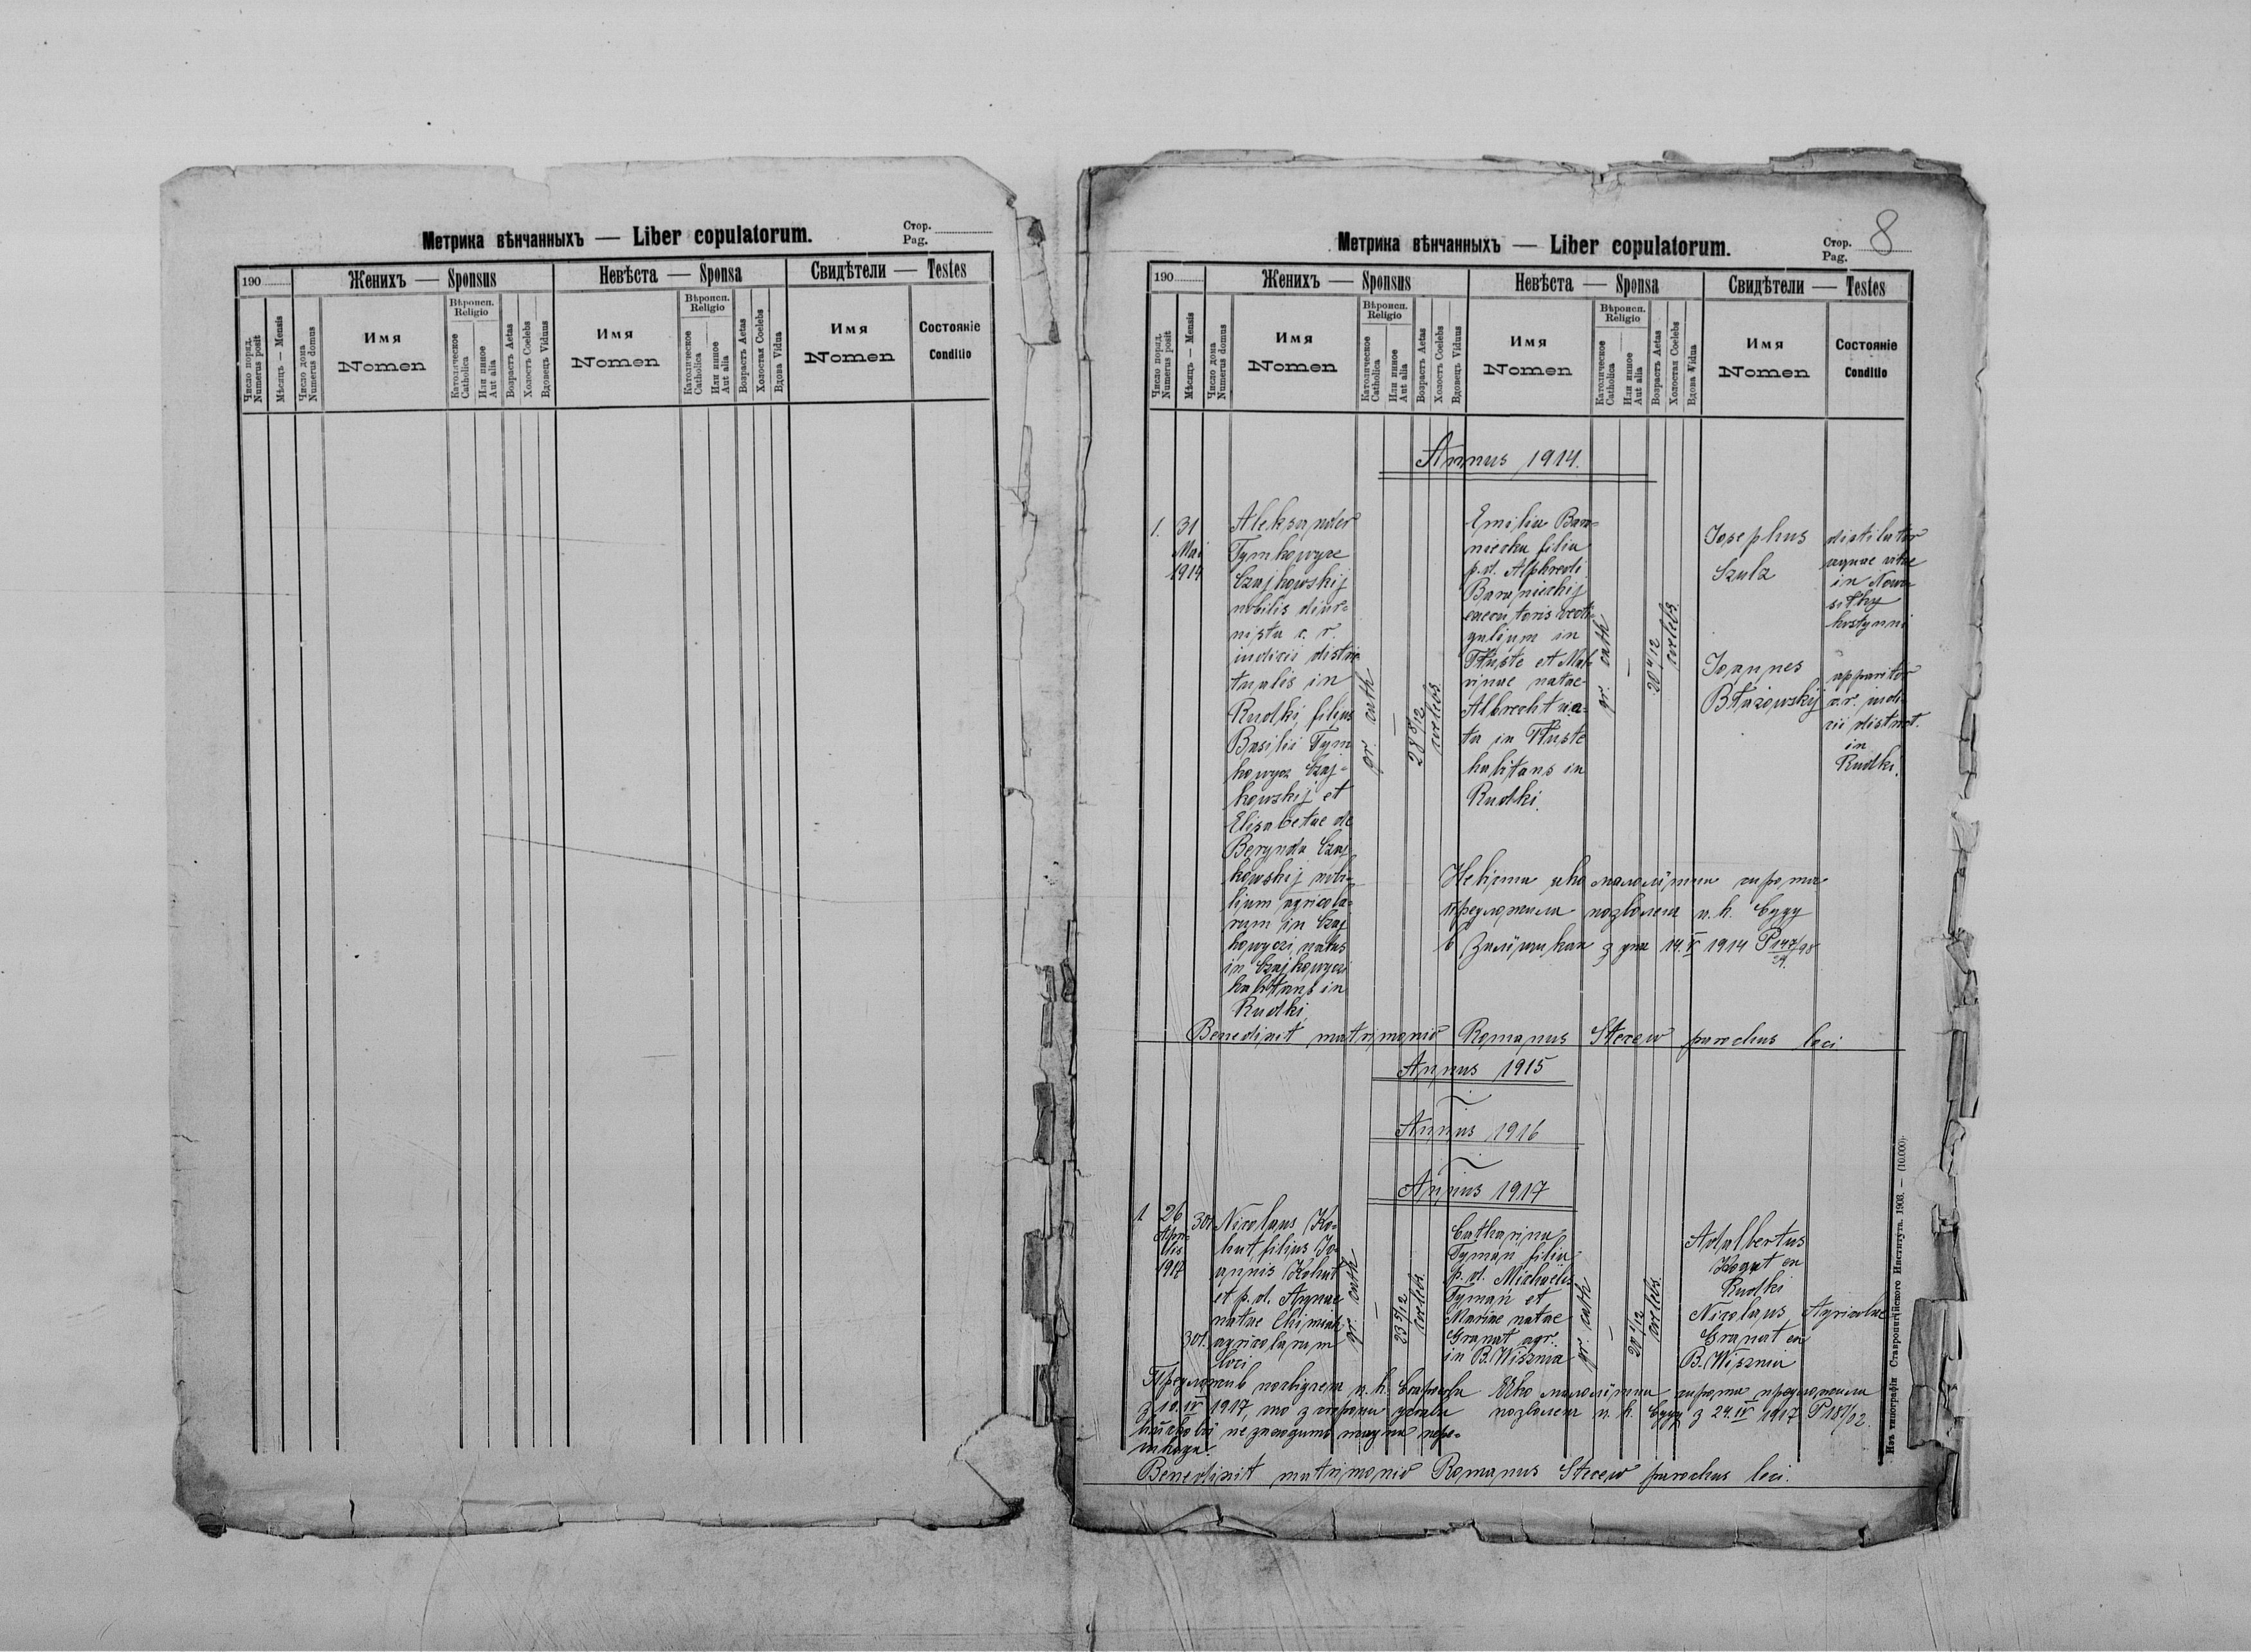 Метрика вѣнчанныхъ — Liber copulatorum.
Стор.
Pag.
190
Женихъ — Sponsus
Невѣста — Sponsa
Свидѣтели — Testes
Число поряд.
Numerus posit
Мѣсяцъ — Mensis
Число дома
Numerus domus
Имя
Nomen
Вѣроисп.
Religio
Католическое
Catholica
Или иное
Aut alia
Возрастъ Aetas
Холостъ Coelebs
Вдовецъ Viduus
Имя
Nomen
Вѣроисп.
Religio
Католическое
Catholica
Или иное
Aut alia
Возрастъ Aetas
Холостая Coelebs
Вдова Vidua
Имя
Nomen
Состояніе
Conditio
Метрика вѣнчанныхъ — Liber copulatorum.
Стор.
Pag.
8
190
Женихъ — Sponsus
Невѣста — Sponsa
Свидѣтели — Testes
Число поряд.
Numerus posit
Мѣсяцъ — Mensis
Число дома
Numerus domus
Имя
Nomen
Вѣроисп.
Religio
Католическое
Catholica
Или иное
Aut alia
Возрастъ Aetas
Холостъ Coelebs
Вдовецъ Viduus
Имя
Nomen
Вѣроисп.
Religio
Католическое
Catholica
Или иное
Aut alia
Возрастъ Aetas
Холостая Coelebs
Вдова Vidua
Имя
Nomen
Состояніе
Conditio
Annus 1914.
1.
31
Mai
1914
Aleksander
Tymkowycz
Czajkowskij
nobilis diur=
nista c. r.
iudicii distric
tualis in
Rudki, filius
Basilii Tym
kowycz Czaj=
kowskij et
Elisabetae de
Berynda Czaj
kowskij nobi=
lium agricola=
rum in Czaj
kowyczi, natus
in Czajkowyczi
habitans in
Rudki.
gr. cath
—
28 5/12
coelebs
Emilia Bara=
niecka filia
p. d. Alphredi
Baranieckij
executoris vecti=
galium in
Tłuste et Mal=
vinae natae
Albrecht na=
ta in Tłuste
habitans in
Rudki.
gr. cath
—
coelebs
Josephus
Szulz
distilator
aquae vitae
in Nowo
sitky
hostynni
Joannes
Błazowskij
apparitor
c. r. judi
cii district.
in
Rudki.
Невіста яко малолїтна сирота
предложила позволенє ц. к. Суду
в Залїщиках з дня 14. V 1914 P 147/98
Benedixit matrimonio Romanus Stecew parochus loci
Annus 1915
—
Annus 1916
—
Annus 1917
1
26
Apri=
lis
1917
301
Nicolaus Ko=
hut filius Jo=
annis Kohut
et p. d. Agnae
natae Chimiak
301. agricolarum
loci
gr. cath
—
23 5/12
coelebs
Catharina
Tyman filia
p. d. Michaelis
Tyman et
Mariae natae
Granat agr.
in B. Wisznia
gr. cath
—
coelebs
Adalbertus
Kogut ex
Rudki
Nicolaus
Granat ex
B. Wisznia
Agricolae
Предложив позволенє ц. к.
з 10. IV 1917, що з сторони
не заходить жадна пере=
шкода.
Яко малолїтна сирота предложила
позволенє ц. к. Суду з 24. IV 1917 P 187/02.
Benedixit matrimonio Romanus Stecew parochus loci.
Изъ типографіи Ставропигійского Института. 1908. — (10.000).